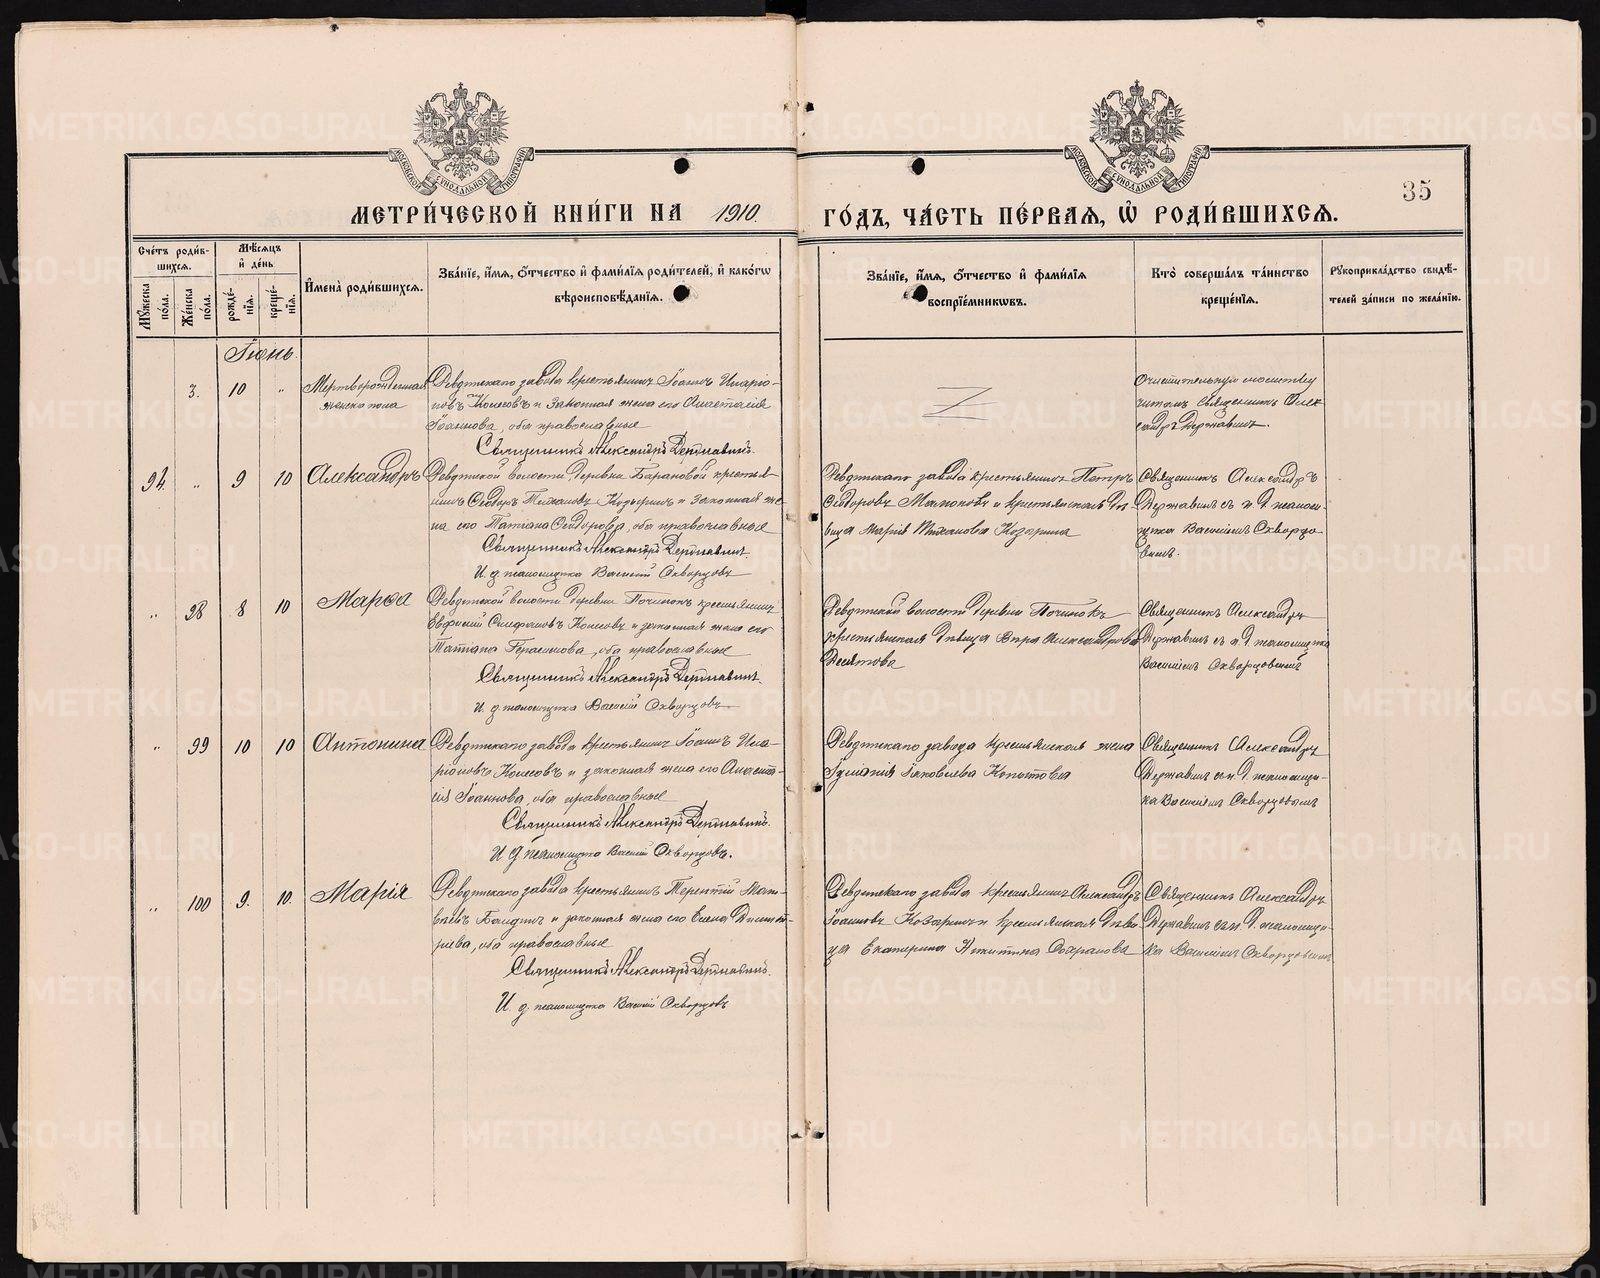 МОСКОВСКОЙ СѴНОДАЛЬНОЙ ТИПОГРАФІИ
МОСКОВСКОЙ СѴНОДАЛЬНОЙ ТИПОГРАФІИ
35
МЕТРИ́ЧЕСКОЙ КНИ́ГИ НА 1910. ГО́ДЪ, ЧА́СТЬ ПЕ́РВАѦ, Ѡ РОДИ́ВШИХСѦ.
Сче́тъ роди́в-
шихсѧ.
Мꙋ́жеска по́ла.
Же́нска по́ла.
Мѣ́сѧцъ
и҆ де́нь.
рожде́-
нїѧ.
креще́-
нїѧ.
И҆мена̀ роди́вшихсѧ.
Зва́нїе, и҆́мѧ, ѻ҆́тчество и҆ фами́лїѧ роди́телей, и҆ како́гѡ
вѣроисповѣ́данїѧ.
Зва́нїе, и҆́мѧ, ѻ҆́тчество и҆ фами́лїѧ
воспрїе́мникѡвъ.
Кто̀ соверша́лъ та́инство
креще́нїѧ.
Рꙋкоприкла́дство свидѣ́-
телей за́писи по жела́нїю.
Іюнь.
3. 10 „ Мертворожденная
женска пола
Ревдинскаго завода крестьянинъ Іоаннъ Иларіо-
новъ Колесовъ и законная жена его Анастасія
Іоаннова, оба православные
Священникъ Александръ Державинъ.
Очистительную молитву
читалъ священникъ Алек-
сандръ Державинъ.
94. „ 9 10 Александръ
Ревдинской волости, деревни Барановой крестья-
нинъ Сидоръ Тихановъ Козыринъ и законная же-
на его Татіана Сидорова, оба православные
Священникъ Александръ Державинъ.
И. д. псаломщика Василій Скворцовъ
Ревдинскаго завода крестьянинъ Петръ
Сидоровъ и крестьянская дѣ-
вица Марія Тиханова
Священникъ Александръ
Державинъ съ и. д. псалом-
щика Василіемъ Скворцо-
вымъ.
„ 98 8 10 Марѳа
Ревдинской волости деревни Починокъ крестьянинъ
Евфимій Колесовъ и законная жена его
Татіана Герасимова, оба православные
Священникъ Александръ Державинъ.
И. д. псаломщика Василій Скворцовъ
Ревдинской волости деревни Починокъ
крестьянская дѣвица Вѣра Александрова
Десятова
Священникъ Александръ
Державинъ съ и. д. псаломщика
Василіемъ Скворцовымъ
„ 99 10 10 Антонина
Ревдинскаго завода крестьянинъ Іоаннъ Ила-
ріоновъ Колесовъ и законная жена его Анаста-
сія Іоаннова, оба православные
Священникъ Александръ Державинъ.
И. д. псаломщика Василій Скворцовъ.
Ревдинскаго завода крестьянская жена
Іуліанія Іаковлева Копытова
Священникъ Александръ
Державинъ съ и. д. псаломщи-
ка Василіемъ Скворцовымъ
„ 100 9. 10. Марія
Ревдинскаго завода крестьянинъ Терентій Мат-
вѣевъ и законная жена его Елена Димит-
ріева, оба православные
Священникъ Александръ Державинъ.
И. д. псаломщика Василій Скворцовъ
Ревдинскаго завода крестьянинъ Александръ
Іоанновъ Козыринъ и крестьянская дѣви-
ца Екатерина Никитина
Священникъ Александръ
Державинъ съ и. д. псаломщи-
ка Василіемъ Скворцовымъ
METRIKI.GASO-URAL.RU